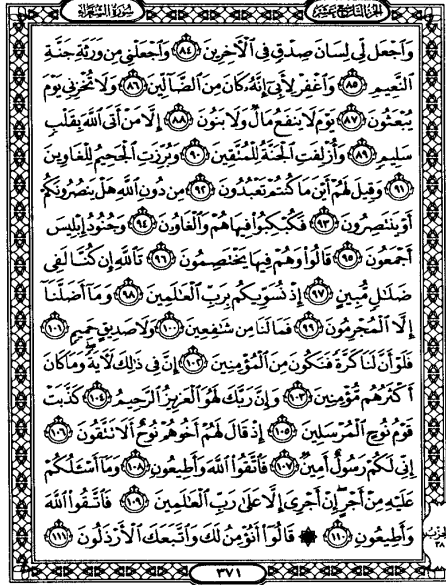 الجزء التاسع عشر
سورة الشعراء
وَاجْعَل لِّي لِسَانَ صِدْقٍ فِي الْآخِرِينَ ٨٤ وَاجْعَلْنِي مِن وَرَثَةِ جَنَّةِ
النَّعِيمِ ٨٥ وَاغْفِرْ لِأَبِي إِنَّهُ كَانَ مِنَ الضَّالِّينَ ٨٦ وَلَا تُخْزِنِي يَوْمَ
يُبْعَثُونَ ٨٧ يَوْمَ لَا يَنفَعُ مَالٌ وَلَا بَنُونَ ٨٨ إِلَّا مَنْ أَتَى اللَّهَ بِقَلْبٍ
سَلِيمٍ ٨٩ وَأُزْلِفَتِ الْجَنَّةُ لِلْمُتَّقِينَ ٩٠ وَبُرِّزَتِ الْجَحِيمُ لِلْغَاوِينَ
٩١ وَقِيلَ لَهُمْ أَيْنَ مَا كُنتُمْ تَعْبُدُونَ ٩٢ مِن دُونِ اللَّهِ هَلْ يَنصُرُونَكُمْ
أَوْ يَنتَصِرُونَ ٩٣ فَكُبْكِبُوا فِيهَا هُمْ وَالْغَاوُونَ ٩٤ وَجُنُودُ إِبْلِيسَ
أَجْمَعُونَ ٩٥ قَالُوا وَهُمْ فِيهَا يَخْتَصِمُونَ ٩٦ تَاللَّهِ إِن كُنَّا لَفِي
ضَلَالٍ مُّبِينٍ ٩٧ إِذْ نُسَوِّيكُم بِرَبِّ الْعَالَمِينَ ٩٨ وَمَا أَضَلَّنَا
إِلَّا الْمُجْرِمُونَ ٩٩ فَمَا لَنَا مِن شَافِعِينَ ١٠٠ وَلَا صَدِيقٍ حَمِيمٍ ١٠١
فَلَوْ أَنَّ لَنَا كَرَّةً فَنَكُونَ مِنَ الْمُؤْمِنِينَ ١٠٢ إِنَّ فِي ذَٰلِكَ لَآيَةً وَمَا كَانَ
أَكْثَرُهُم مُّؤْمِنِينَ ١٠٣ وَإِنَّ رَبَّكَ لَهُوَ الْعَزِيزُ الرَّحِيمُ ١٠٤ كَذَّبَتْ
قَوْمُ نُوحٍ الْمُرْسَلِينَ ١٠٥ إِذْ قَالَ لَهُمْ أَخُوهُمْ نُوحٌ أَلَا تَتَّقُونَ ١٠٦
إِنِّي لَكُمْ رَسُولٌ أَمِينٌ ١٠٧ فَاتَّقُوا اللَّهَ وَأَطِيعُونِ ١٠٨ وَمَا أَسْأَلُكُمْ
عَلَيْهِ مِنْ أَجْرٍ إِنْ أَجْرِيَ إِلَّا عَلَىٰ رَبِّ الْعَالَمِينَ ١٠٩ فَاتَّقُوا اللَّهَ
وَأَطِيعُونِ ١١٠ ۞ قَالُوا أَنُؤْمِنُ لَكَ وَاتَّبَعَكَ الْأَرْذَلُونَ ١١١
الحزب
٣٨
٣٧١